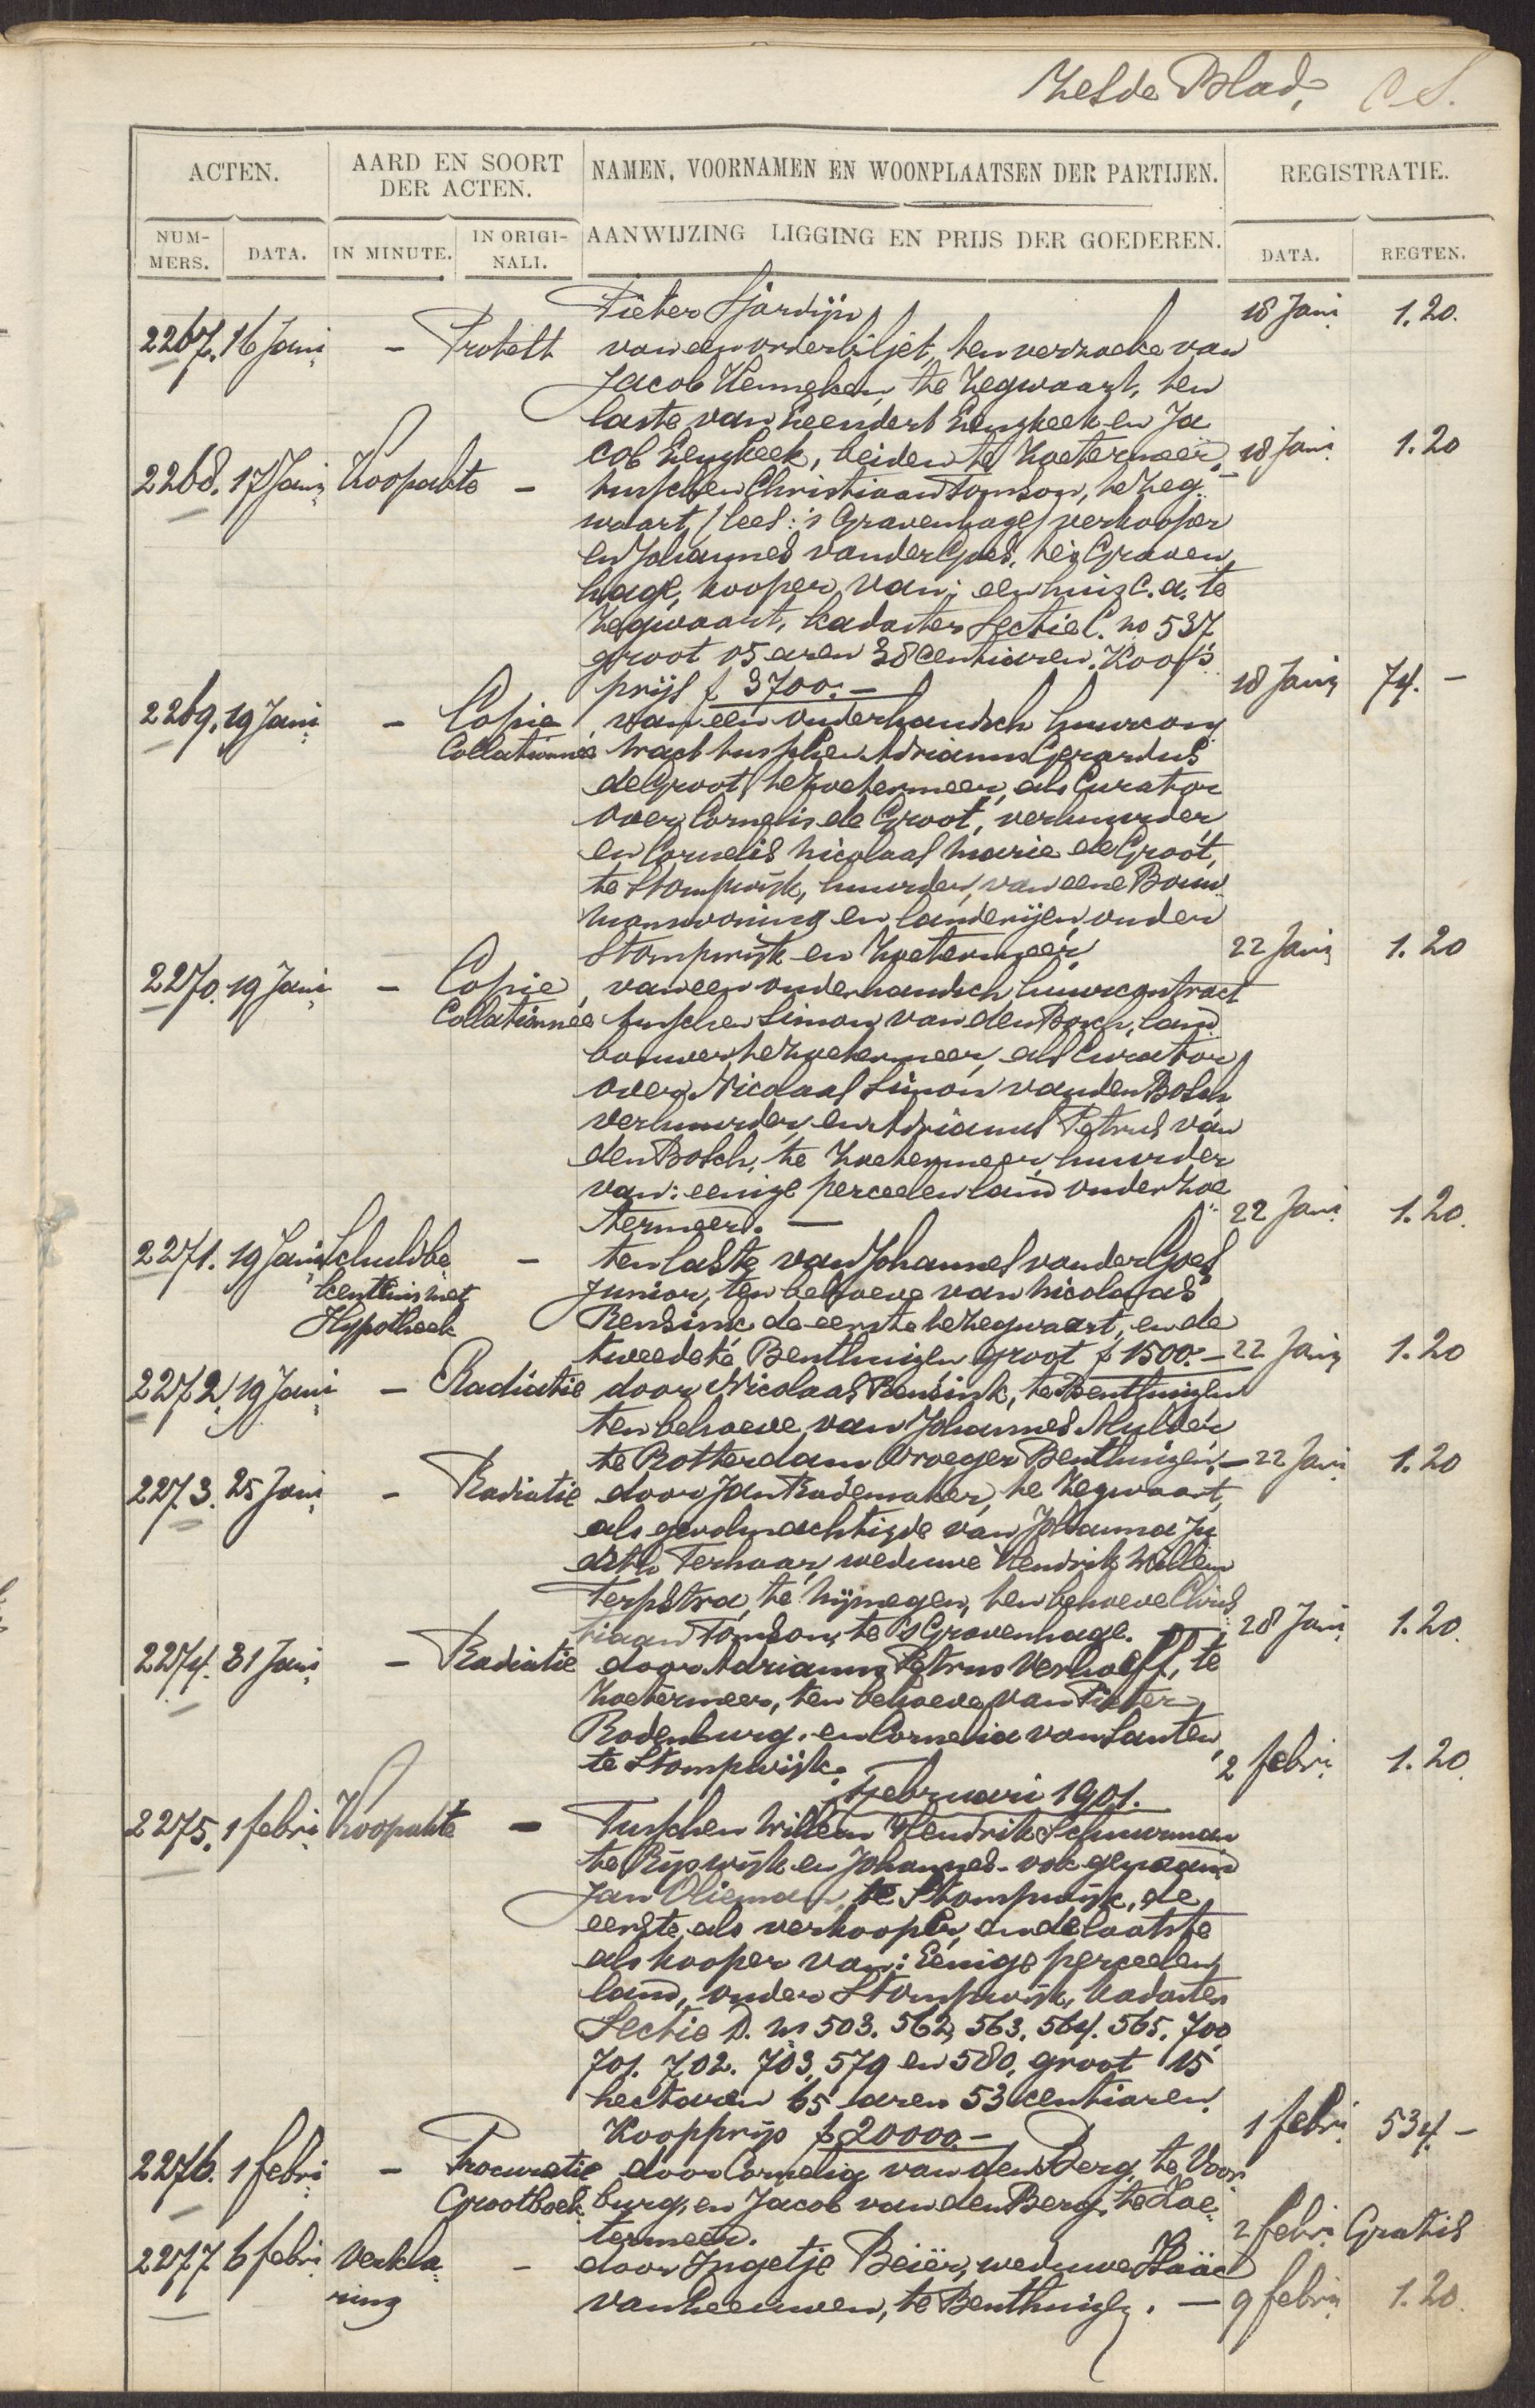 Zesde Blad, C S.
ACTEN. AARD EN SOORT DER ACTEN. NAMEN, VOORNAMEN EN WOONPLAATSEN DER PARTIJEN. REGISTRATIE.
NUM-MERS. DATA. IN MINUTE. IN ORIGI-NALI. AANWIJZING LIGGING EN PRIJS DER GOEDEREN. DATA. REGTEN.
Pieter Sjardijn 18 Jani 1.20.
2267. 16 Jani - Protest van een orderbiljet, ten verzoeke van
Jacob Henneken, te Zegwaart, ten
laste van Leendert Lengkeek en Ja
cob Lengkeek, beiden te Zoetermeer, 18 Jani 1.20
2268. 17 Jani Koopakte - tusschen Christiaan Tomson, te Zeg
waart, (lees: 's Gravenhage) verkooper
en Johannes van der Goes, te 's Graven
hage, kooper, van: een huis c.a. te
Zegwaart, kadaster Sectie C. no 537
groot 05 aren 38 centiaren. Koops
prijs f 3700.- 18 Jani 74.-
2269. 19 Jani - Copie van een onderhandsch huurcon
Collationnée tract tusschen Adrianus Gerardus
de Groot, te Zoetermeer, als Curator
over Cornelis de Groot, verhuurder
en Cornelis Nicolaas Marie de Groot,
te Stompwijk, huurder, van eene Bouw
manswoning en landerijen onder
Stompwijk en Zoetermeer. 22 Jani 1.20
2270. 19 Jani - Copie, van een onderhandsch huurcontract
Collationnée tusschen Simon van den Bosch, land
bouwer te Zoetermeer, als Curator
over Nicolaas Simon van den Bosch
verhuurder, en Adrianus Petrus van
den Bosch, te Zoetermeer, huurder
van: eenige perceelen land onder Zoe
termeer. - 22 Jani 1.20.
2271. 19 Jani Schuldbe - ten laste van Johannes van der Goes
kentenis met Junior, ten behoeve van Nicolaas
Hypotheek Rensink de eerste te Zegwaart, en de
tweede te Benthuizen groot f 1500.- 22 Jani 1.20
2272. 19 Jani - Radiatie door Nicolaas Rensink, te Benthuizen
ten behoeve van Johannes Mulder
te Rotterdam vroeger Benthuizen. - 22 Jani 1.20
2273. 25 Jani - Radiatie door Jan Rademaker, te Zegwaart,
als gevolmachtigde van Johanna Ju
dith Terhaar, weduwe Hendrik Willem
Terpstra, te Nijmegen, ten behoeve Chris
tiaan Tomson, te 's Gravenhage. 28 Jani 1.20.
2274. 31 Jani - Radiatie door Adrianus Petrus Verhoeff, te
Zoetermeer, ten behoeve van Pieter
Rodenburg, en Cornelia van Santen,
te Stompwijk. 2 febri 1.20.
Februari 1901.
2275. 1 febri Koopakte - Tusschen Willem Hendrik Schuurman
te Rijswijk en Johannes - ook genaamd
Jan Olieman, te Stompwijk, de
eerste als verkooper, en de laatste
als kooper van: Eenige perceelen
land, onder Stompwijk, kadaster
Sectie D. no 503. 562, 563. 564. 565. 700
701. 702. 703, 579 en 580, groot 15
hectaren 65 aren 53 centiaren.
Koopprijs f 20000.- 1 febri 534.-
2276. 1 febri - Procuratie door Cornelis van den Berg, te Voor
Grootboek burg, en Jacob van den Berg, te Zoe
termeer. 2 febri Gratis
2277 6 febri Verkla - door Ingetje Beiër, weduwe Izaäc
ring van Leeuwen, te Benthuizen. - 9 febri 1.20.